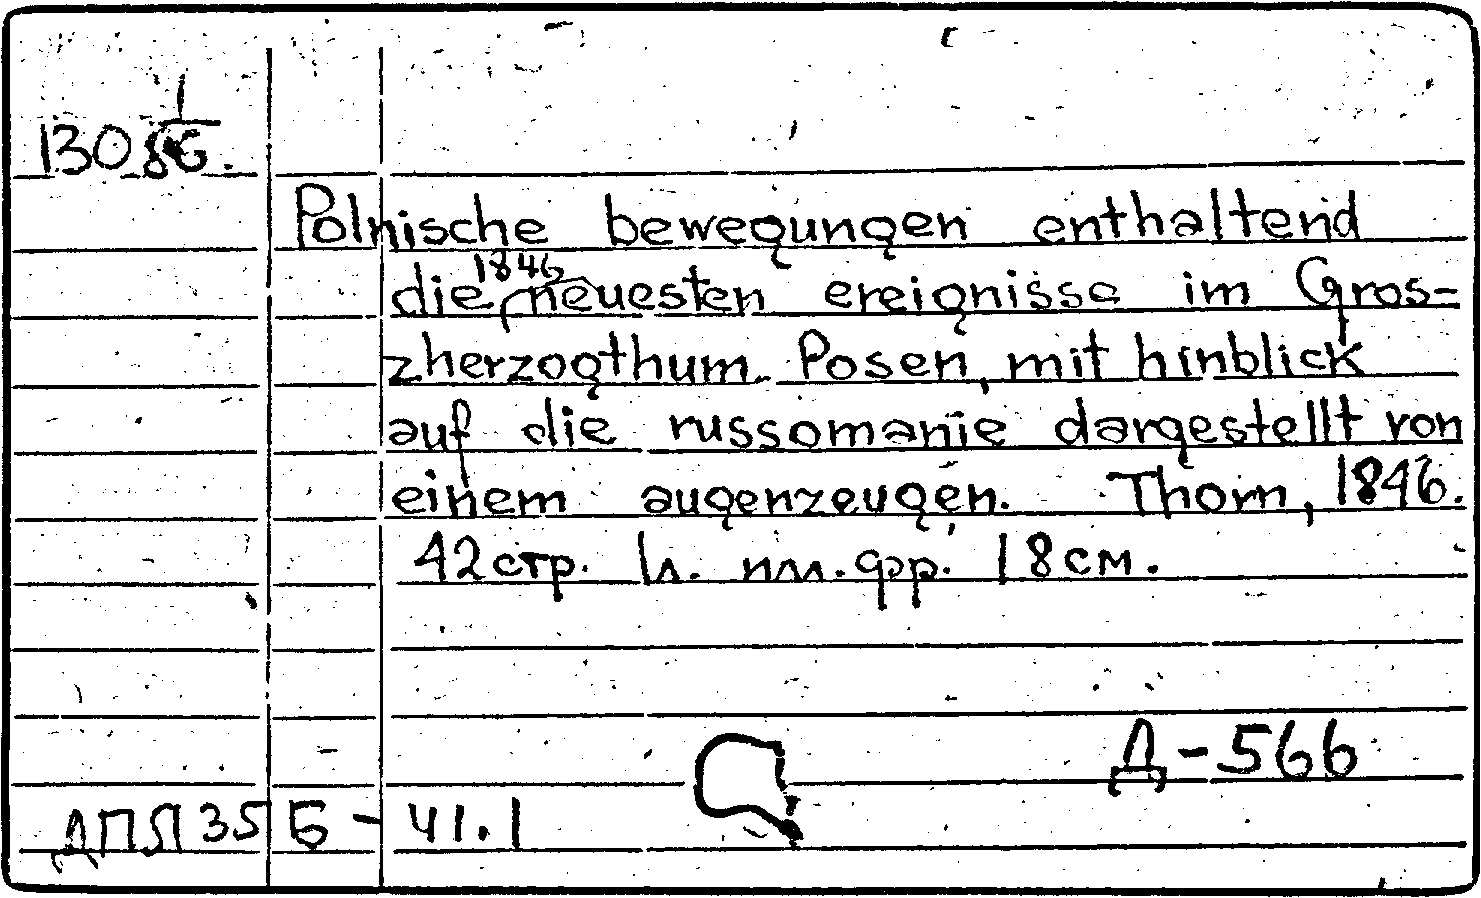 1
1308б.
Polnische bewegungen enthaltend
1846
die neuesten ereignisse im Gros-
zherzogthum Posen, mit hinblick
auf die russomanie dargestellt von
einem augenzeugen. Thorn, 1846.
42 стр. 1 л. илл. фр. 18 см.
Д-566
ДПЛ 35 Б - 41.1